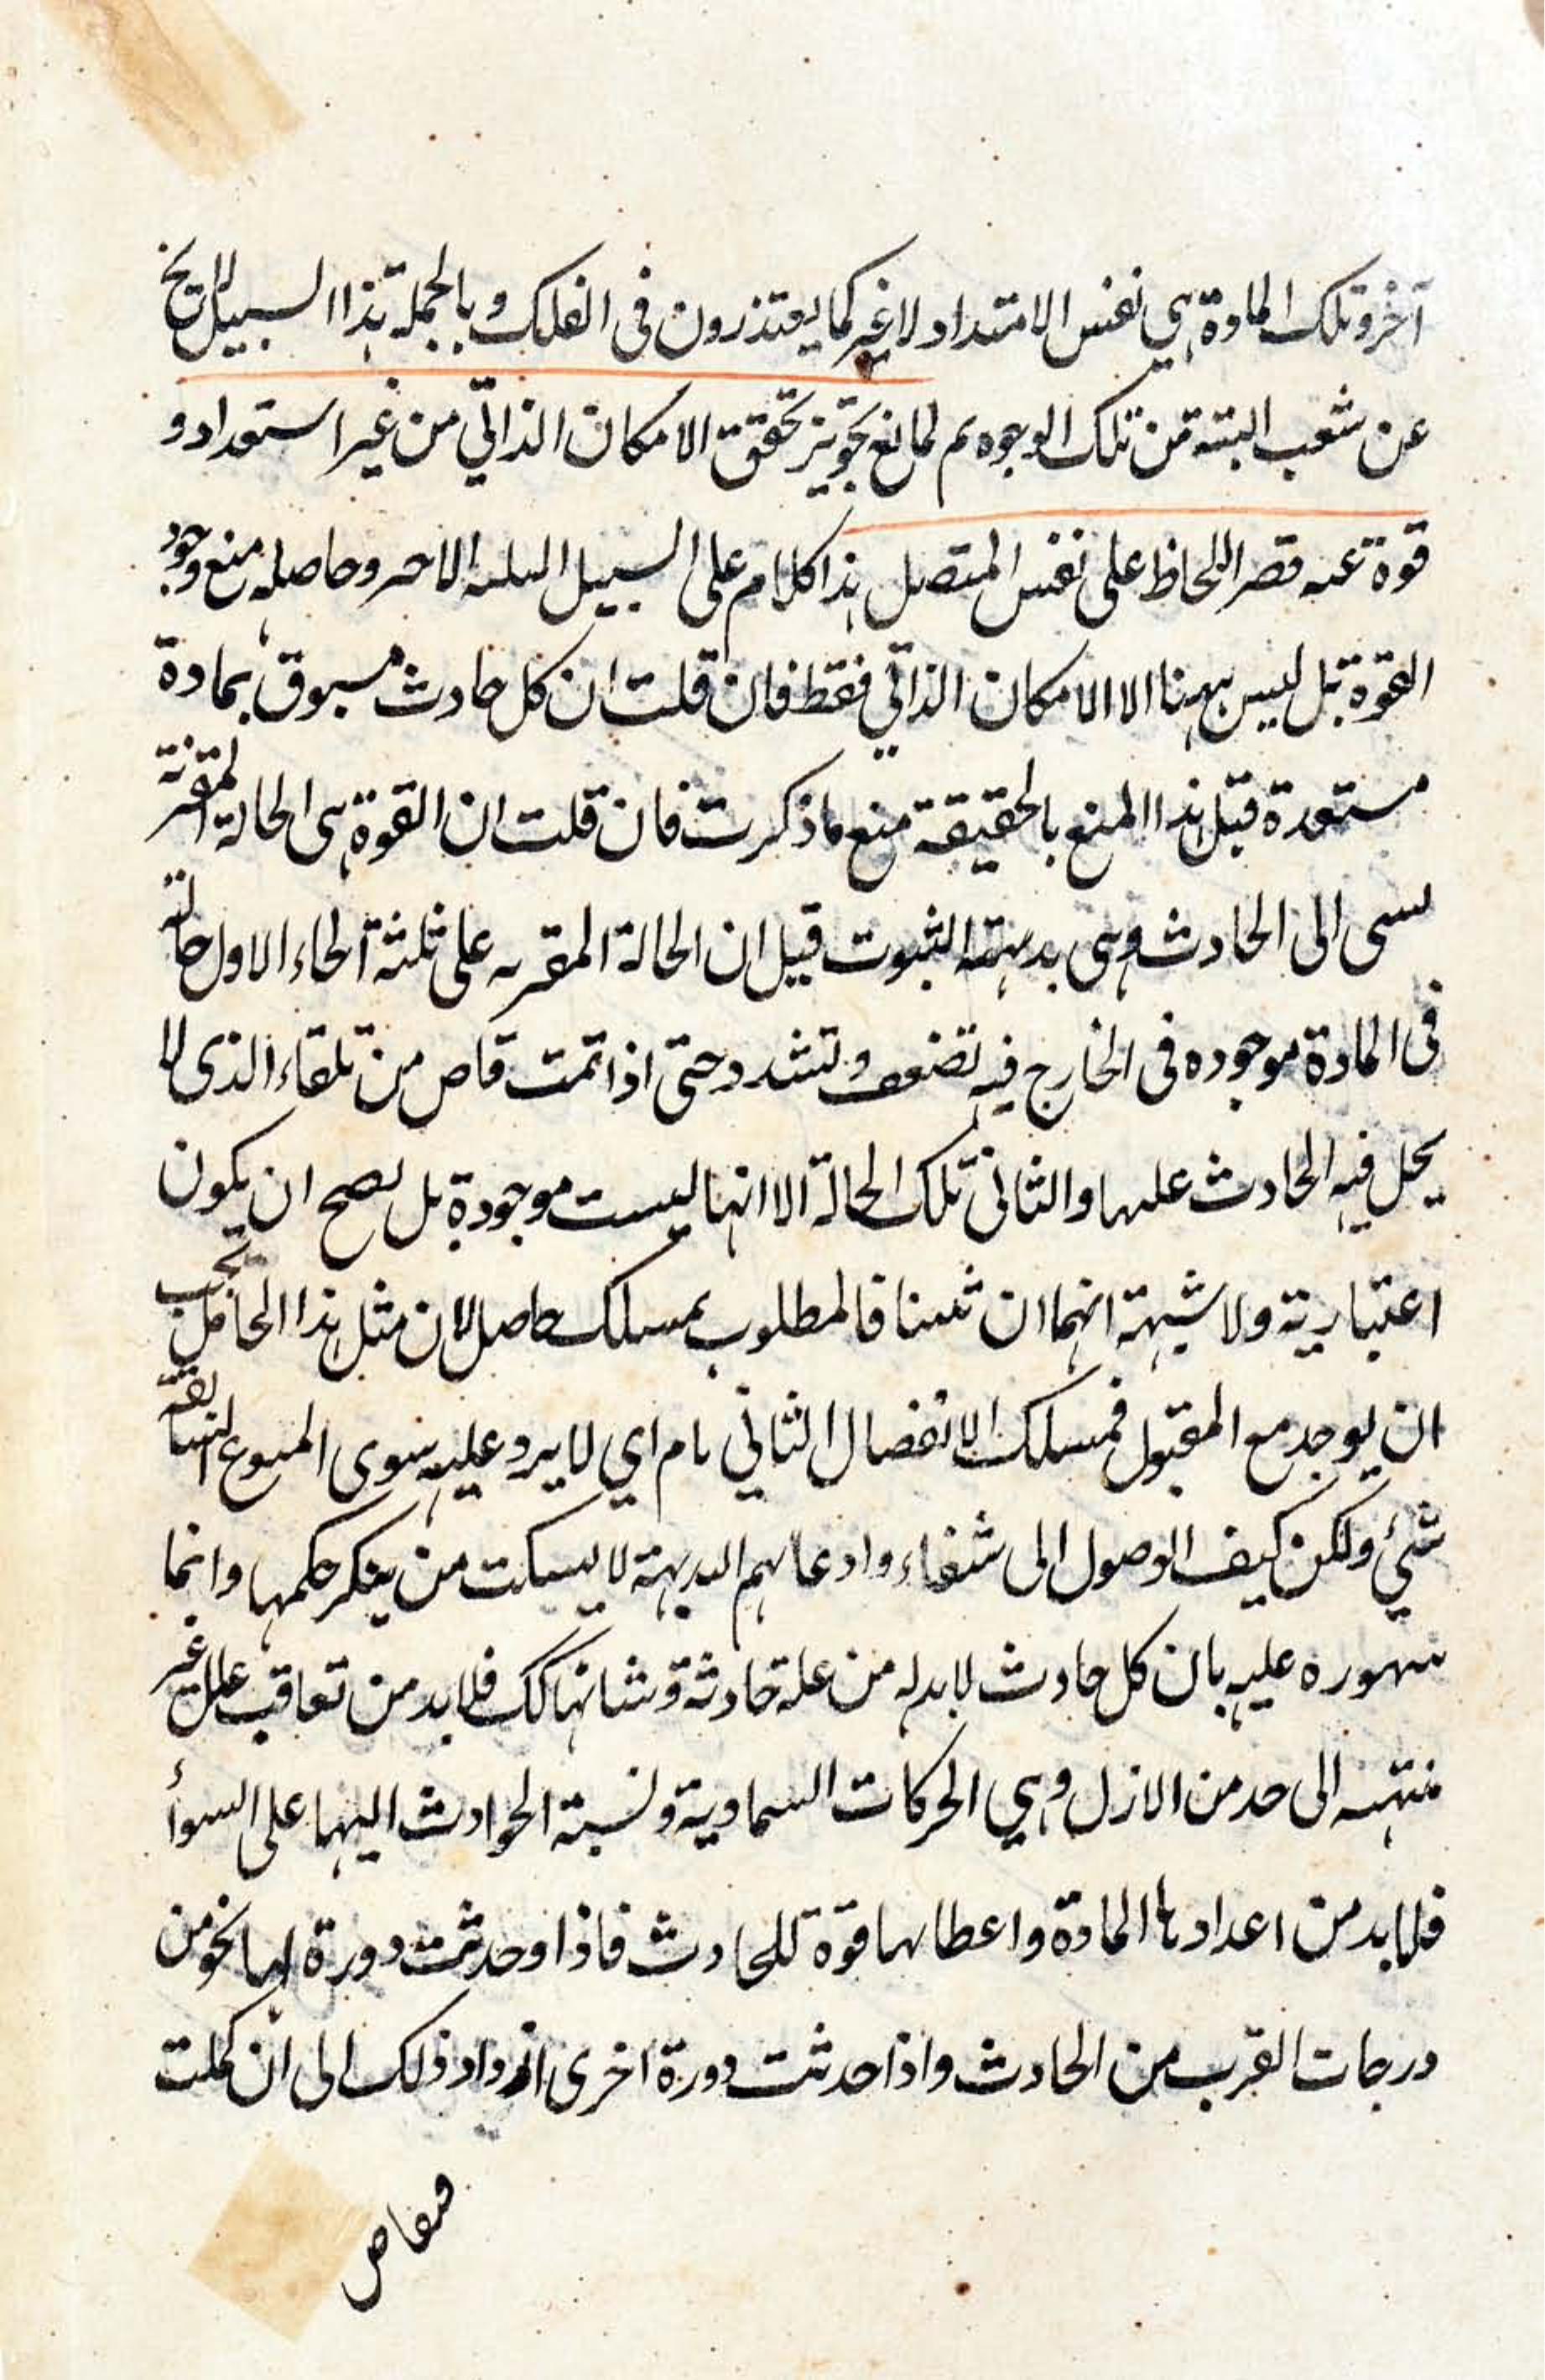 آخر وتلك المادة هي نفس الامتداد لا غير كما يعتذرون في الفلك وبالجملة هذا السبيل لا يخ
عن شغب البتة من تلك الوجوه ثم لمانع تجويز تحقق الامكان الذاتي من غير استعداد و
قوة عند قصر اللحاظ على نفس المتصل هذا كلام على السبيل الاخر وحاصله منع وجود
القوة بل ليس ههنا الا الامكان الذاتي فقط فان قلت ان كل حادث مسبوق بمادة
مستعدة قبل هذا المنع بالحقيقة منع ما ذكرت فان قلت ان القوة هي الحالة المقربة
الى الحادث وهي بديهية الثبوت قيل ان الحالة المقربه على ثلثة انحاء الاول حالة
في المادة موجوده في الخارج فيه تضعف وتشدد حتى اذا تمت فاض من تلقاء الذي لا
يحل فيه الحادث عليها والثاني تلك الحالة الا انها ليست موجودة بل يصح ان يكون
اعتبارية ولا شبهة انهما ان ثبتنا فالمطلوب بمسلك حاصل لان مثل هذا الحامل يجب
ان يوجد مع المقبول فمسلك الانفصال الثاني تام اي لا يرد عليه سوى المنوع السابقة
شيئ ولكن كيف الوصول الى شفاء وادعائهم البديهة لا يسكت من ينكر حكمها وانما
عليه بان كل حادث لا بد له من علة حادثة وشانها كك فلا بد من تعاقب علل غير
منتهية الى حد من الازل وهي الحركات السماوية ونسبة الحوادث اليها على السوأ
فلا بد من اعدادها المادة واعطائها قوة للحادث فاذا وحدثت دورة لها نحو من
درجات القرب من الحادث واذا حدثت دورة اخرى ازداد ذلك الى ان كملت
ففاض